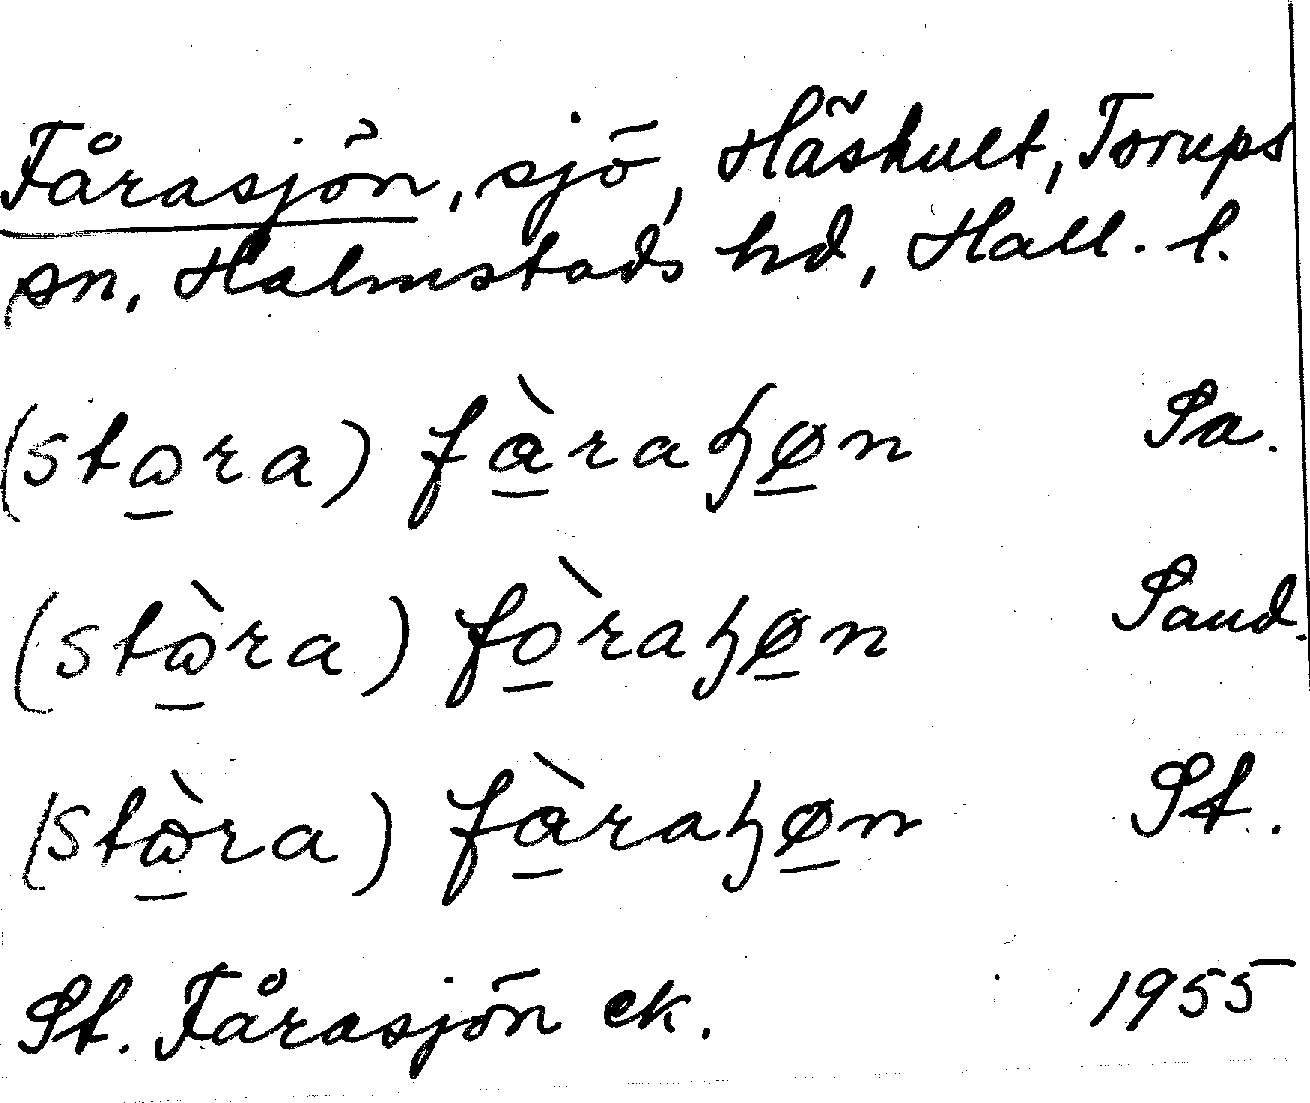 Fårasjön, sjö, Häskult, Torups
sn, Halmstads hd, Hall. l.
(stɷra) fàraɧøn Sa.
(stɷ̀ra) fòraɧøn Sand.
(stɷ̀ra) fàraɧøn St.
St. Fårasjön ek. 1955